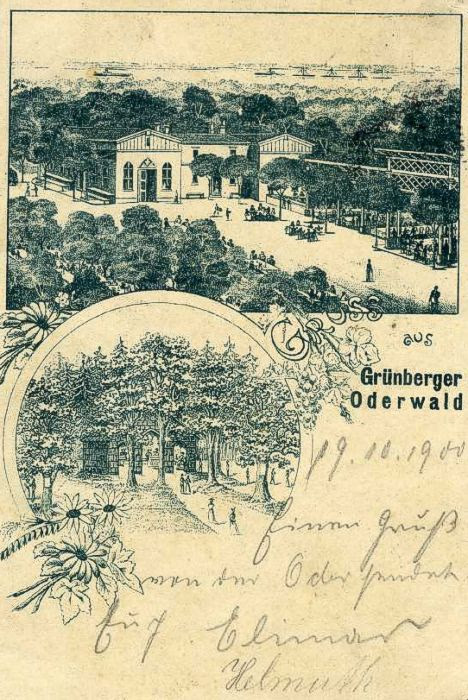 Gruss
aus
Grünberger
Oderwald
19.10.1900
Einen Gruß
von der Oder sendet
Euch Elimar
Helmuth